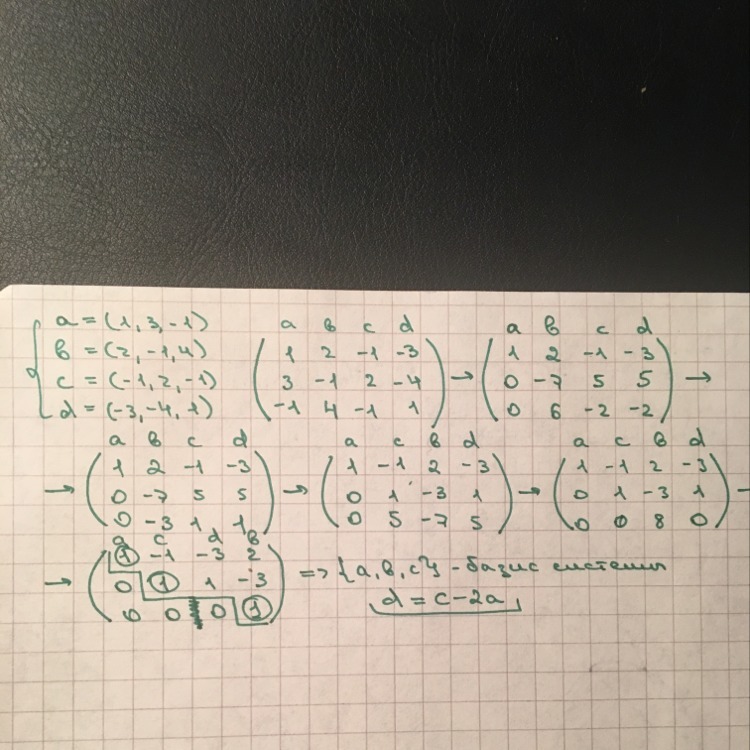 a = (1, 3, -1)
b = (2, -1, 4)
c = (-1, 2, -1)
d = (-3, -4, 1)
a b c d
1 2 -1 -3
3 -1 2 -4
-1 4 -1 1
→
a b c d
1 2 -1 -3
0 -7 5 5
0 6 -2 -2
→
a b c d
→ 1 2 -1 -3
0 -7 5 5
0 -3 1 1
→
a c b d
1 -1 2 -3
0 1 -3 1
0 5 -7 5
→
a c b d
1 -1 2 -3
0 1 -3 1
0 0 8 0
→
a c d b
→ 1 -1 -3 2
0 1 1 -3
0 0 0 1
=> {a, b, c} - базис системы
d = c - 2a